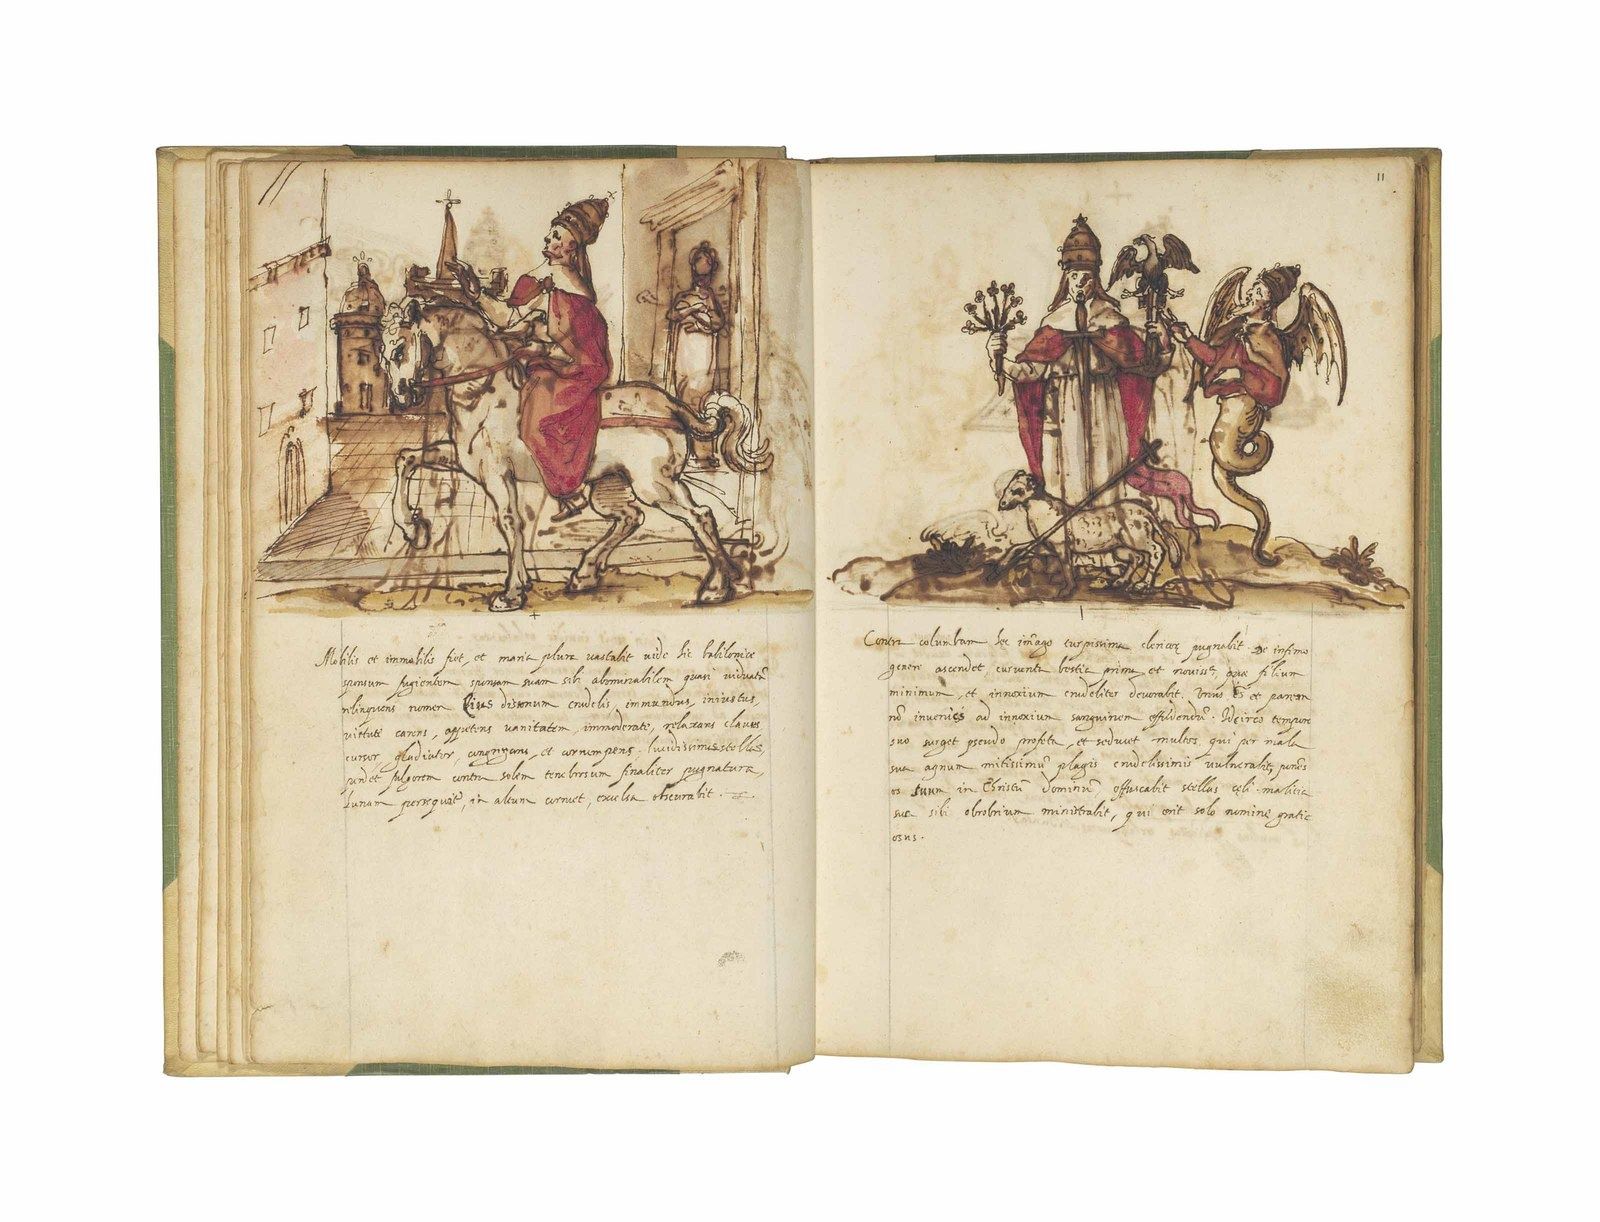 Mobilis et immobilis fiet, et maria plura vastabit vide hic babilonice
sponsum fugientem sponsam suam sibi abominabilem quasi viduatã
relinquens nomen eius dissonum crudelis, immundus, iniustus,
virtute carens, appetens vanitatem, immoderate, relaxans claves
cursor, gladiator, congregans, et contempens. lividissimus stellas
fulgorem contra solem tenebrosum finaliter pugnatura,
Lunam persequet, in altum cornuet, excelsa obscurabit.
11
Contra columbam hec imago turpissima clericoꝝ pugnabit De infimo
genere ascendet, cruenta bestia prima et noviss, quæ filium
minimum, et innoxium crudeliter devorabit. Unus es et parem
nõ invenies ad innoxium sanguinem effundendũ. Idcirco tempore
suo surget pseudo profeta, et seducet multos, qui per mala
sua agnum mitissimũ plagis crudelissimis vulnerabit, ponẽs
os suum in Christũ dominũ, offuscabit stellas celi. malitia
sua sibi obrobrium ministrabit, qui erit solo nomine gratie
osus.